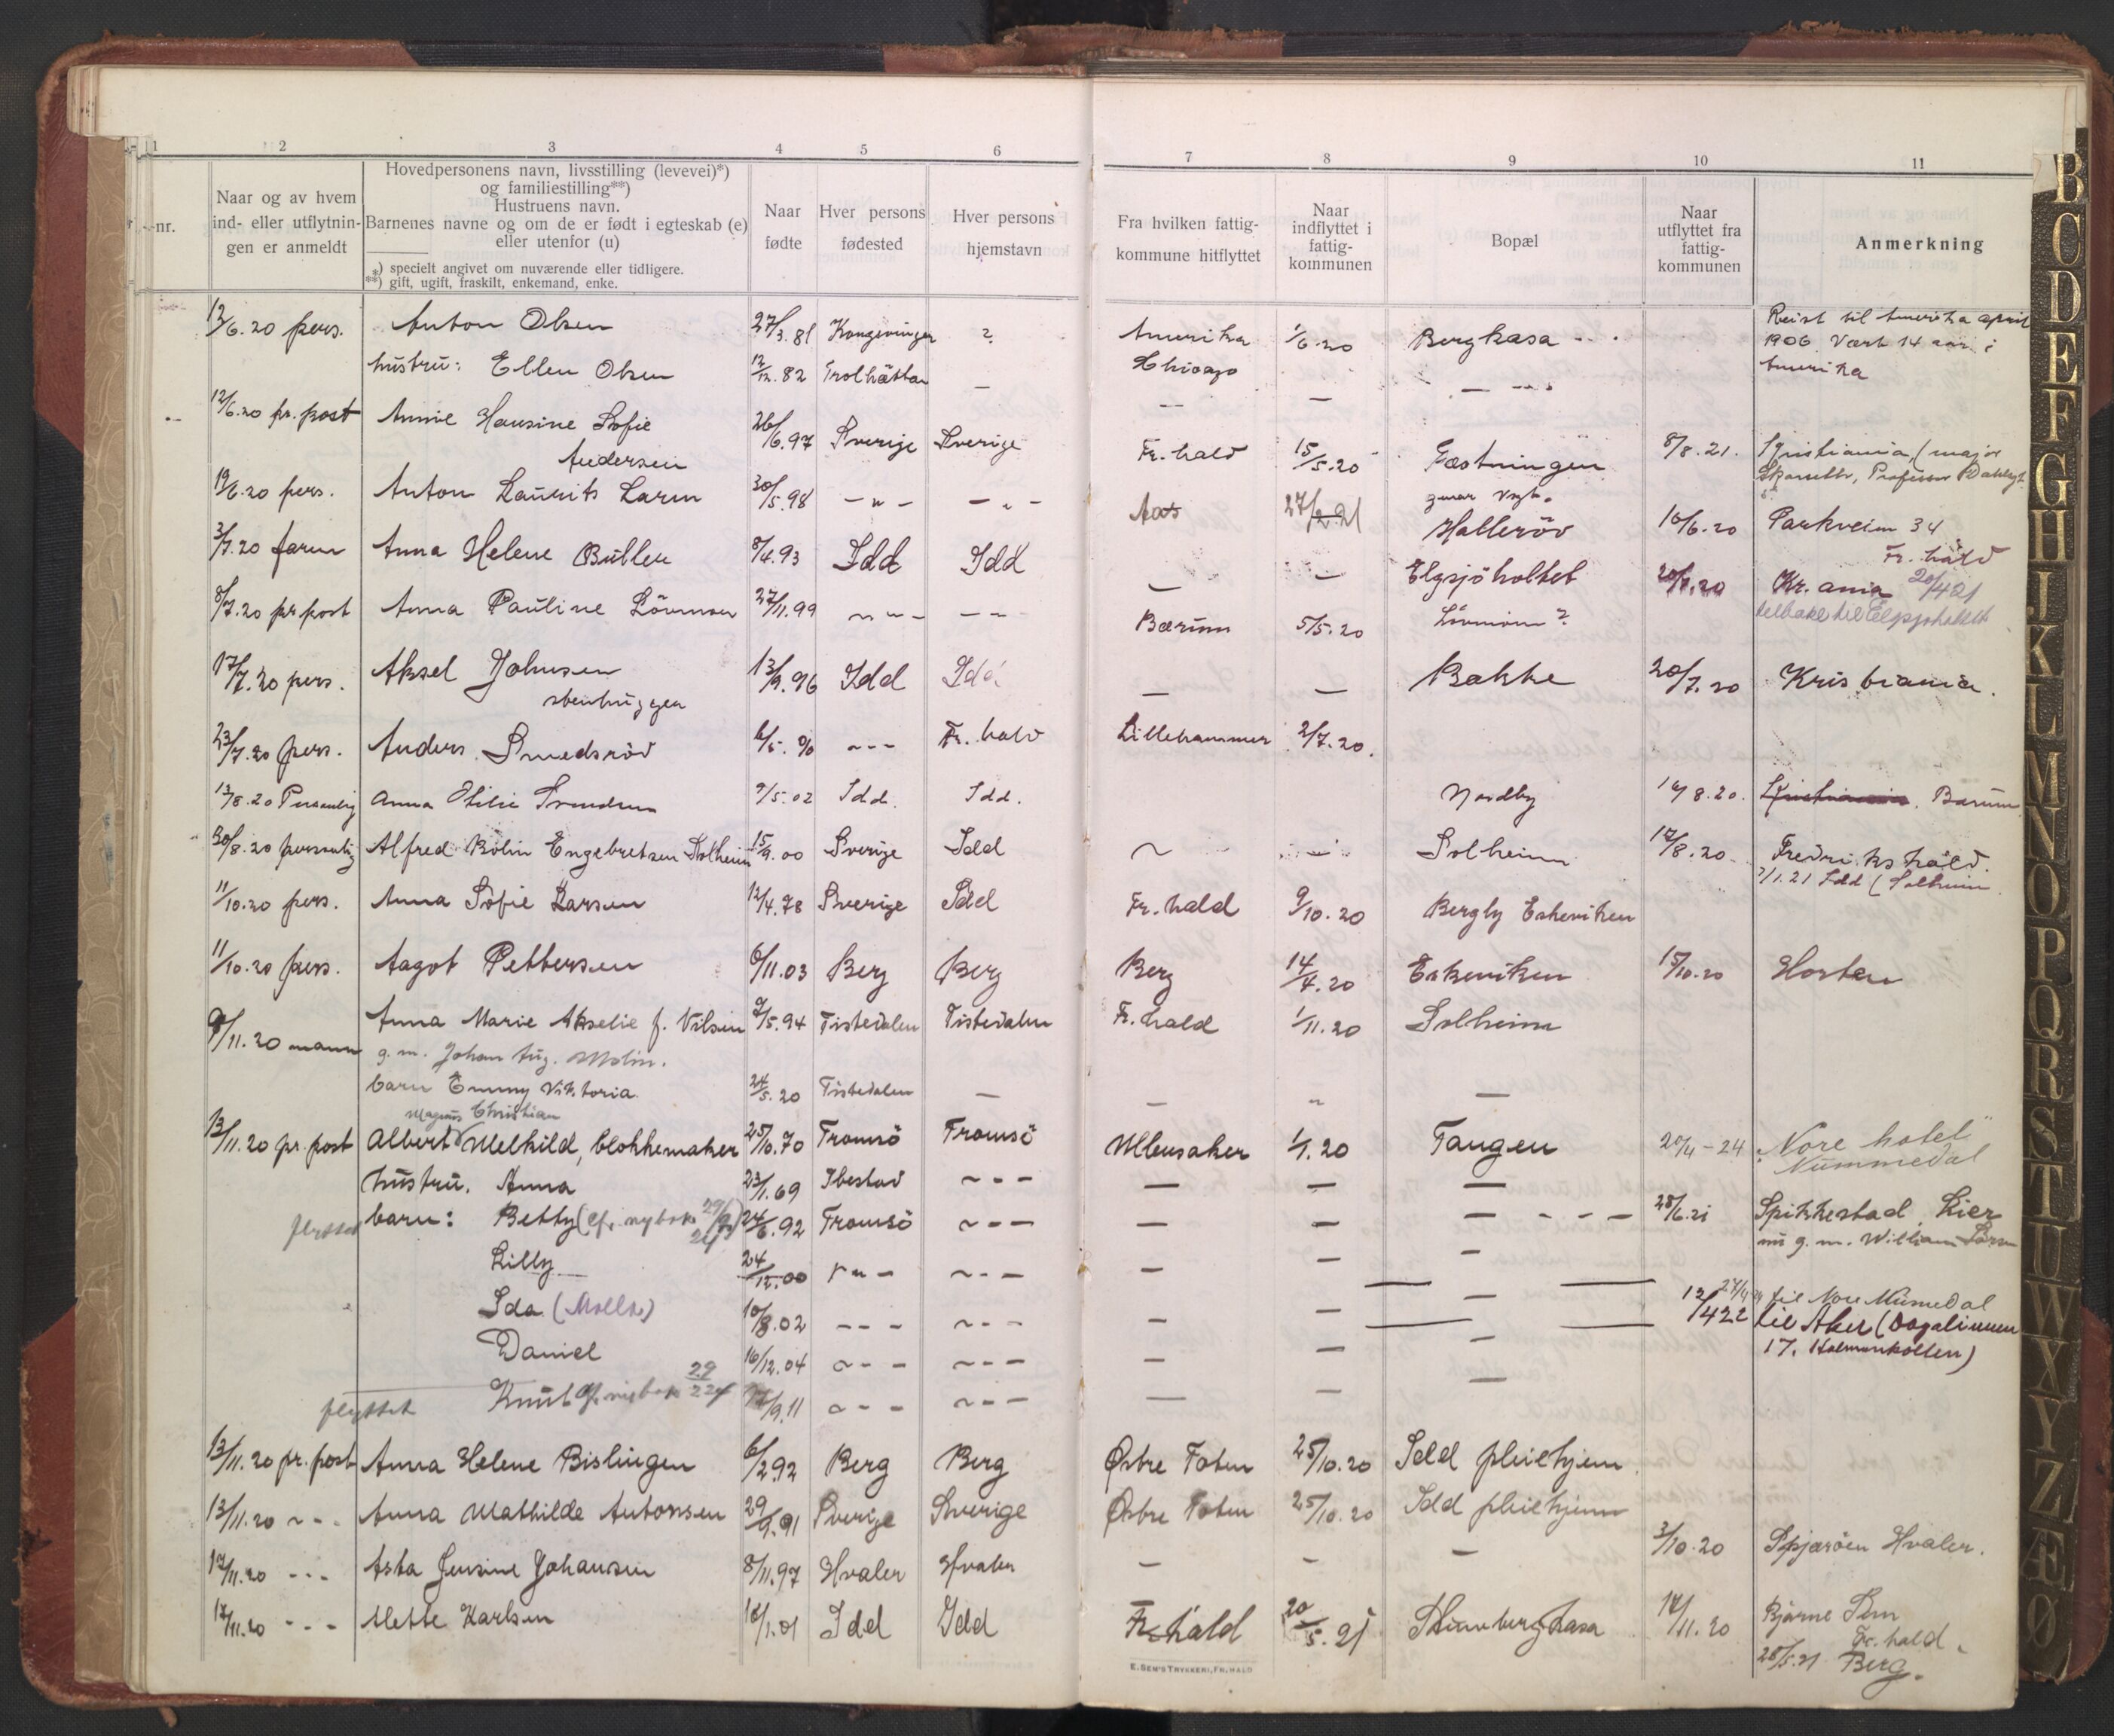 1 2 3 4 5 6 7 8 9 10 11
nr.
Naar og av hvem
ind- eller utflytnin-
gen er anmeldt
Hovedpersonens navn, livsstilling (levevei)*)
og familiestilling**)
Hustruens navn.
Barnenes navne og om de er født i egteskab (e)
eller utenfor (u)
*) specielt angivet om nuværende eller tidligere.
**) gift, ugift, fraskilt, enkemand, enke.
Naar
fødte
Hver persons
fødested
Hver persons
hjemstavn
Fra hvilken fattig-
kommune hitflyttet
Naar
indflyttet i
fattig-
kommunen
Bopæl
Naar
utflyttet fra
fattig-
kommunen
Anmerkning
12/6.20 pers. Anton Olsen 27/3.81 Kongsvinger ? Amerika 1/6.20 Bergkasa Reist til Amerika april
1906 Vært 14 aar i
Amerika
hustru: Ellen Olsen 12/12.82 Trolhättan — Chicago — —
12/6.20 pr. post Annie Hansine Sofie
Andersen 26/6.97 Sverige Sverige Fr. hald 15/5.20 Fæstningen 8/8.21. Kristiania, (major
19/6.20 pers. Anton Laurits Larsen 30/5.98 — " — — " — Aas 27/2.21 Halleröd 16/6.20 Parkveien 34
Fr. hald
3/7.20 faren Anna Helene Buller 8/4.93 Idd Idd — — Elgsjöholtet Kr. ania 20/4 21
tilbake til Elgsjøholtet
8/7.20 pr post Anna Pauline 27/11.99 — " — — " — Bærum 5/5.20
17/7.20 pers. Aksel Johnsen
stenhugger 13/9.96 Idd Idd — — Bakke 20/7.20 Kristiania.
23/7.20 pers. Anders Smedsröd 6/5.90 — " — Fr. hald Lillehammer 2/7.20.
13/8.20 Personlig Anna Otilie Svendsen 9/5.02 Idd. Idd. Nordby 14/8.20. Kristiania. Bærum
30/8.20 personlig Alfred Bolin Engebretsen Solheim 15/9.00 Sverige Idd — — Solheim 17/8.20 Fredrikshald.
7/1.21 Idd (Solheim
11/10.20 pers. Anna Sofie Larsen 12/4.78 Sverige Idd Fr. hald 9/10.20 Bergly Eskeviken
11/10.20 pers. Aagot Pettersen 6/11.03 Berg Berg Berg 14/4.20 Eskeviken 15/10.20 Horten
9/11.20 mann Anna Marie Akselie f. Nilsen 9/5.94 Tistedalen Tistedalen Fr. hald 1/11.20 Solheim
g. m. Johan Aug. Molin.
barn Emmy Viktoria 24/5.20 Tistedalen — — " —
Magnus Christian
13/11.20 pr. post Albert Melkild, blokkemaker 25/10.70 Tromsö Tromsö Ullensaker 1/1.20 Tangen 20/4-24 "Nore hotel"
Nummedal
hustru. Anna 23/1.69 Ibestad — " — — — —
flyttet barn: Betty (cf. ny bok 29/224) 24/6.92 Tromsö — " — — — — 28/6.21 Spikkestad, Lier
nu g. m. William Larsen
Lilly 24/12.00 — " — — " — — — —
Ida 10/8.02 — " — — " — — — — 27/4 24 til Nore Numedal
12/4 22 til Aker (Dagaliveien
17, Holmenkollen)
Daniel 16/12.04 — " — — " — — — —
flyttet Knut cf. ny bok 29/224 /9.11 — " — — " — — — —
13/11.20 pr. post Anna Helene Bislingen 6/2.92 Berg Berg Østre Toten 25/10.20 Idd pleiehjem
13/11.20 — " — Anna Mathilde Antonsen 29/9.91 Sverige Sverige Østre Toten 25/10.20 Idd pleiehjem
17/11.20 — " — Asta Jensine Johansen 8/11.97 Hvaler Hvaler — — — 3/10.20 Spjærøen Hvaler.
17/11.20 — " — Mette Karlsen 16/1.01 Idd Idd Fr. hald 20/5.21 14/11.20 Bjarne Sem
Fr. hald.
28/5.21 Berg.
E. SEM'S TRYKKERI, FR.HALD
B
C
D
E
F
G
H
I
J
K
L
M
N
O
P
Q
R
S
T
U
W
X
Y
Z
Æ
Ø